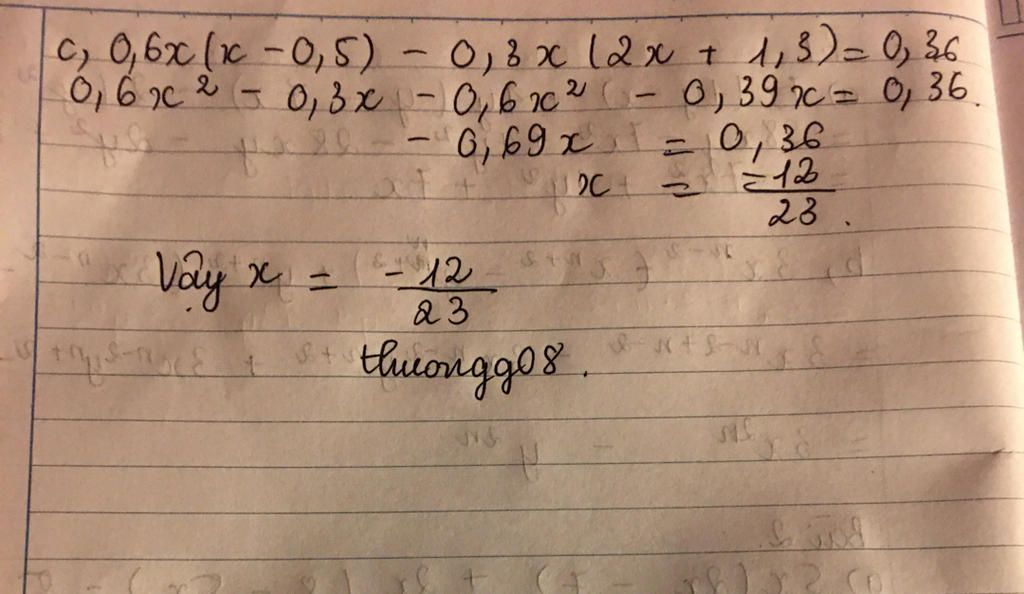 c, 0,6x(x - 0,5) - 0,3x(2x + 1,3) = 0,36
0,6x² - 0,3x - 0,6x² - 0,39x = 0,36.
- 0,69x = 0,36
x = -12/23.
Vậy x = -12/23
thuongg08.